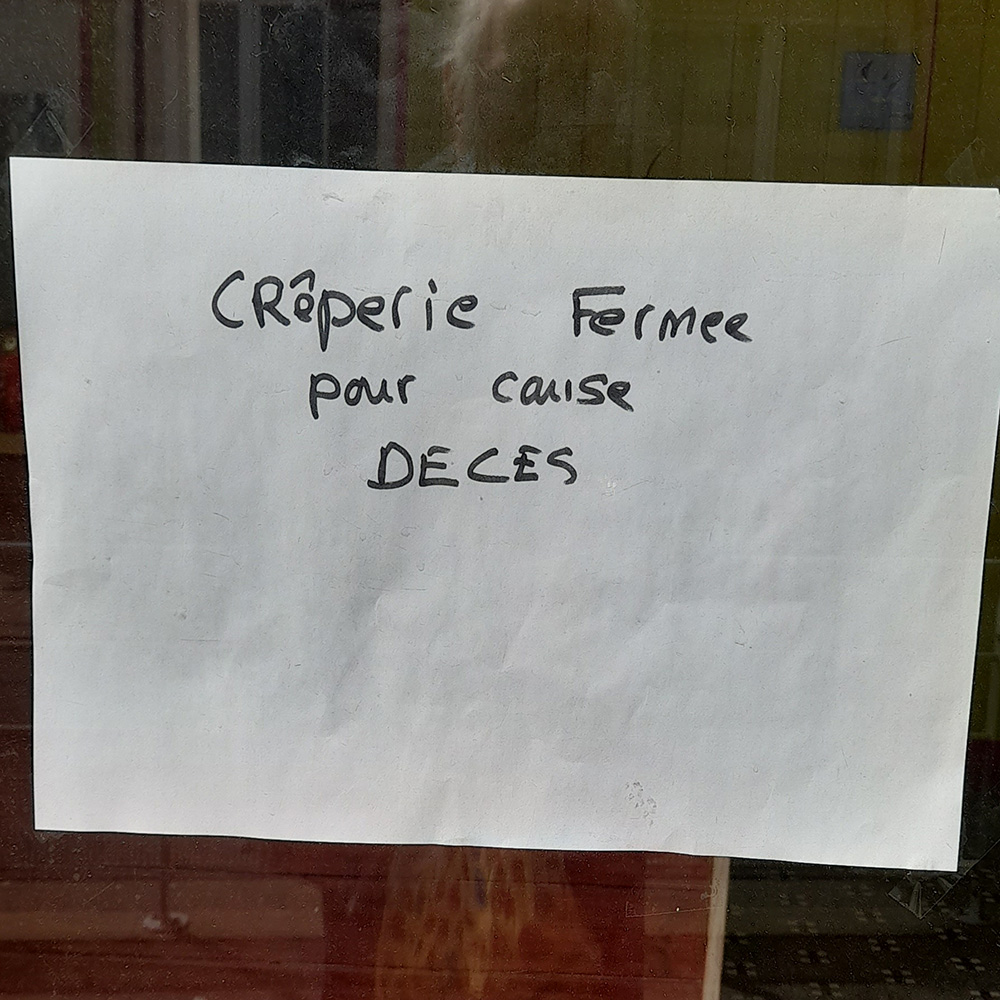 CRêperie Fermee
pour cause
DECES